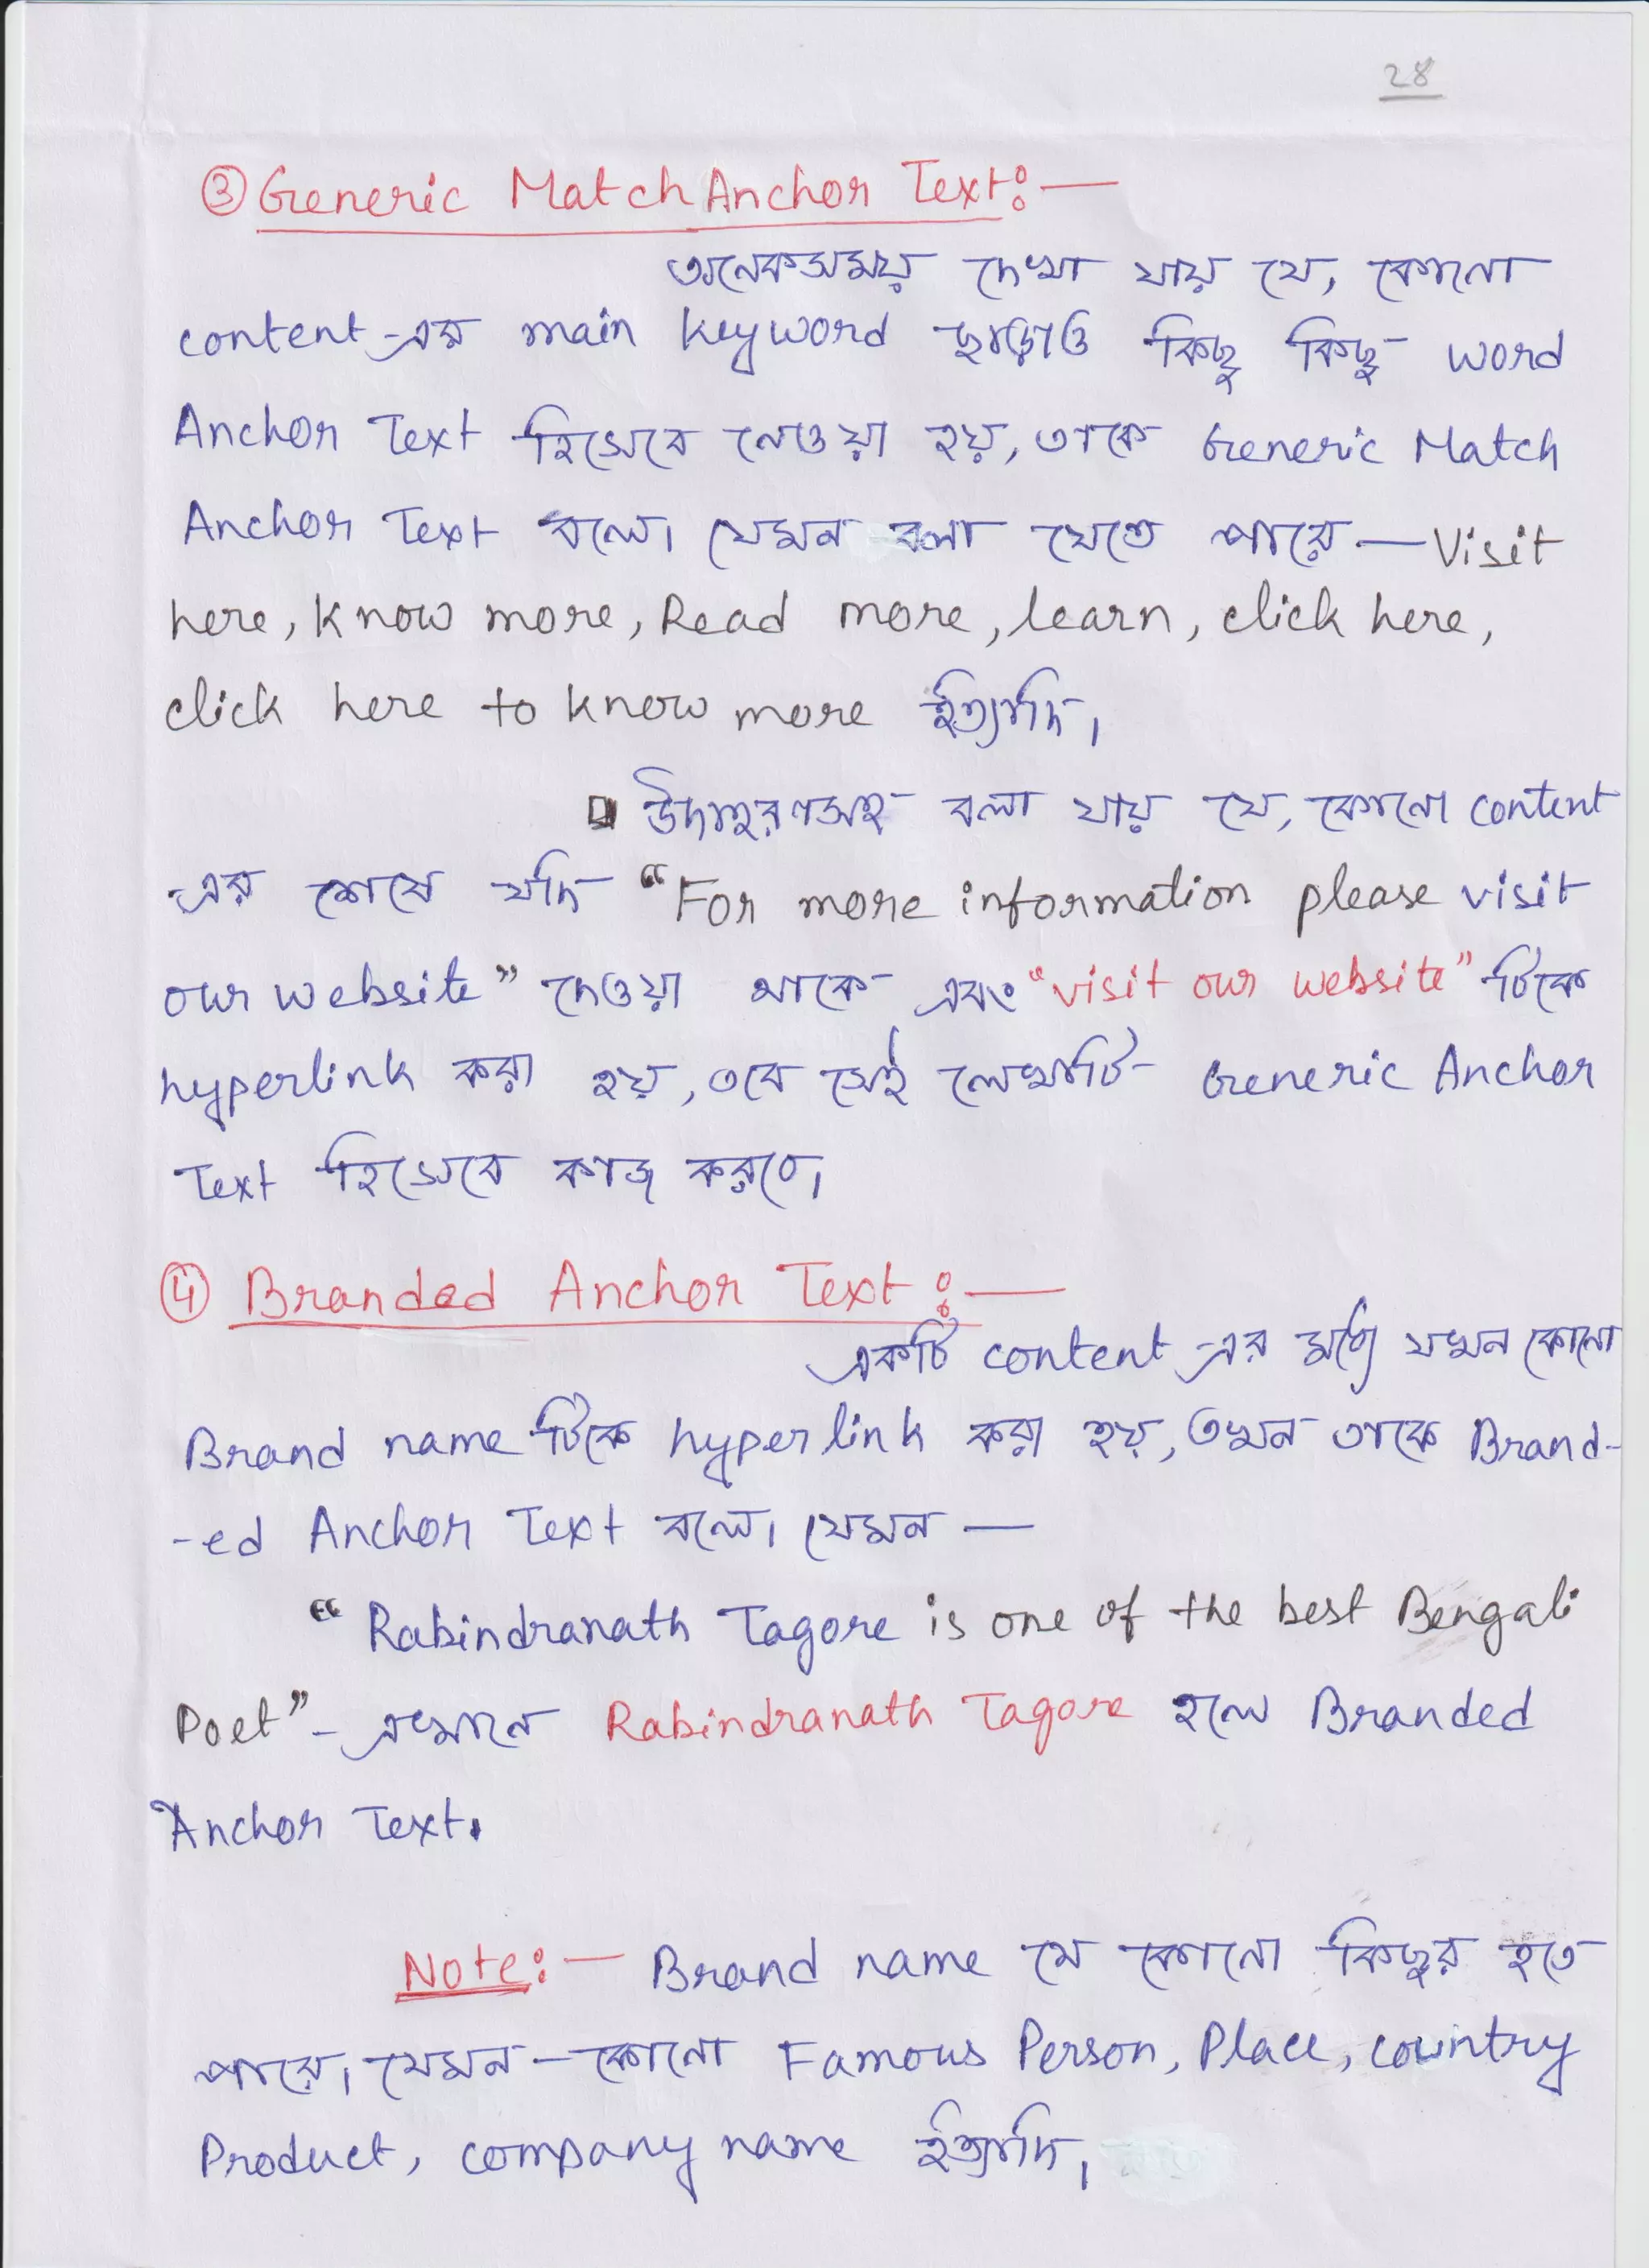 28
③ Generic Match Anchor Text:—
অনেকসময় দেখা যায় যে, কোনো
content-এর main keyword ছাড়াও কিছু কিছু word
Anchor Text হিসেবে নেওয়া হয়, তাকে Generic Match
Anchor Text বলে। যেমন বলা যেতে পারে—Visit
here, know more, Read more, learn, click here,
click here to know more ইত্যাদি।
উদাহরণসহ বলা যায় যে, কোনো content
-এর শেষে যদি “For more information please visit
our website” দেওয়া থাকে এবং “visit our website” টিকে
hyperlink করা হয়, তবে সেই লেখাটি Generic Anchor
Text হিসেবে কাজ করবে।
④ Branded Anchor Text:—
একটি content-এর মধ্যে যখন কোনো
Brand name টিকে hyperlink করা হয়, তখন তাকে Brand-
-ed Anchor Text বলে। যেমন—
“Rabindranath Tagore is one of the best Bengali
Poet”- এখানে Rabindranath Tagore হলো Branded
Anchor Text.
Note:— Brand name যে কোনো কিছুর হতে
পারে। যেমন—কোনো Famous Person, Place, country
Product, company name ইত্যাদি।